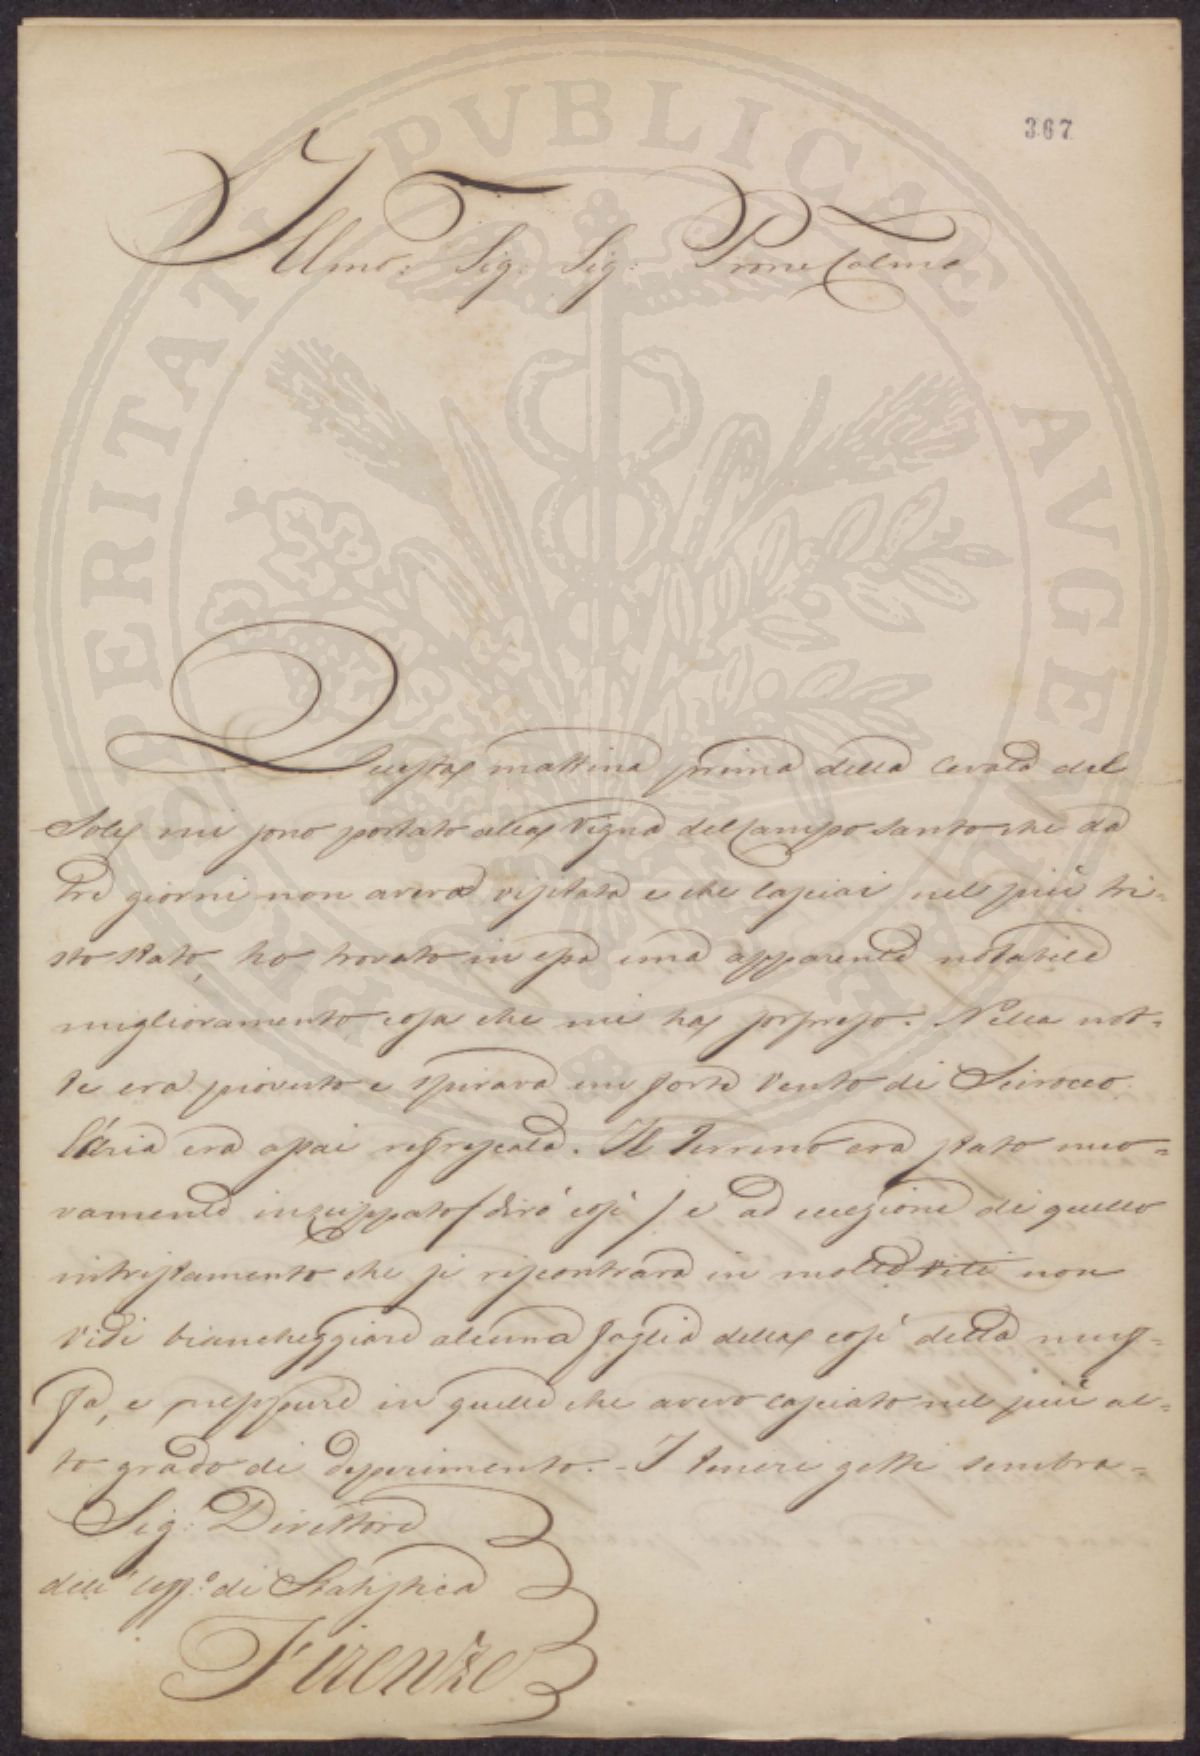 367
Illmo: Sig: Sig: Prone Colmo
Questa mattina prima della Levata del
Sole mi sono portato alla Vigna del Campo santo che da
tre giorni non aveva visitata e che lasciai nel più tri=
sto stato, ho trovato in essa una apparente notabile
miglioramento cosa che mi ha sorpreso. Nella not=
te era piovuto e spirava un forte Vento di Scirocco
l'aria era assai rinfrescata. Il Terreno era stato nuo=
vamente inzuppato / dirò così / e ad eccezione di quello
intristamento che si riscontrava in molte viti non
vidi biancheggiare alcuna foglia della così detta muf=
fa, e neppure in quelle che avevo lasciato nel più al=
to grado di deperimento. - I teneri getti sembra=
Sig: Direttore
dell' Uffo. di Statistica
Firenze
PROSPERITATI PVBLICAE AVGENDAE